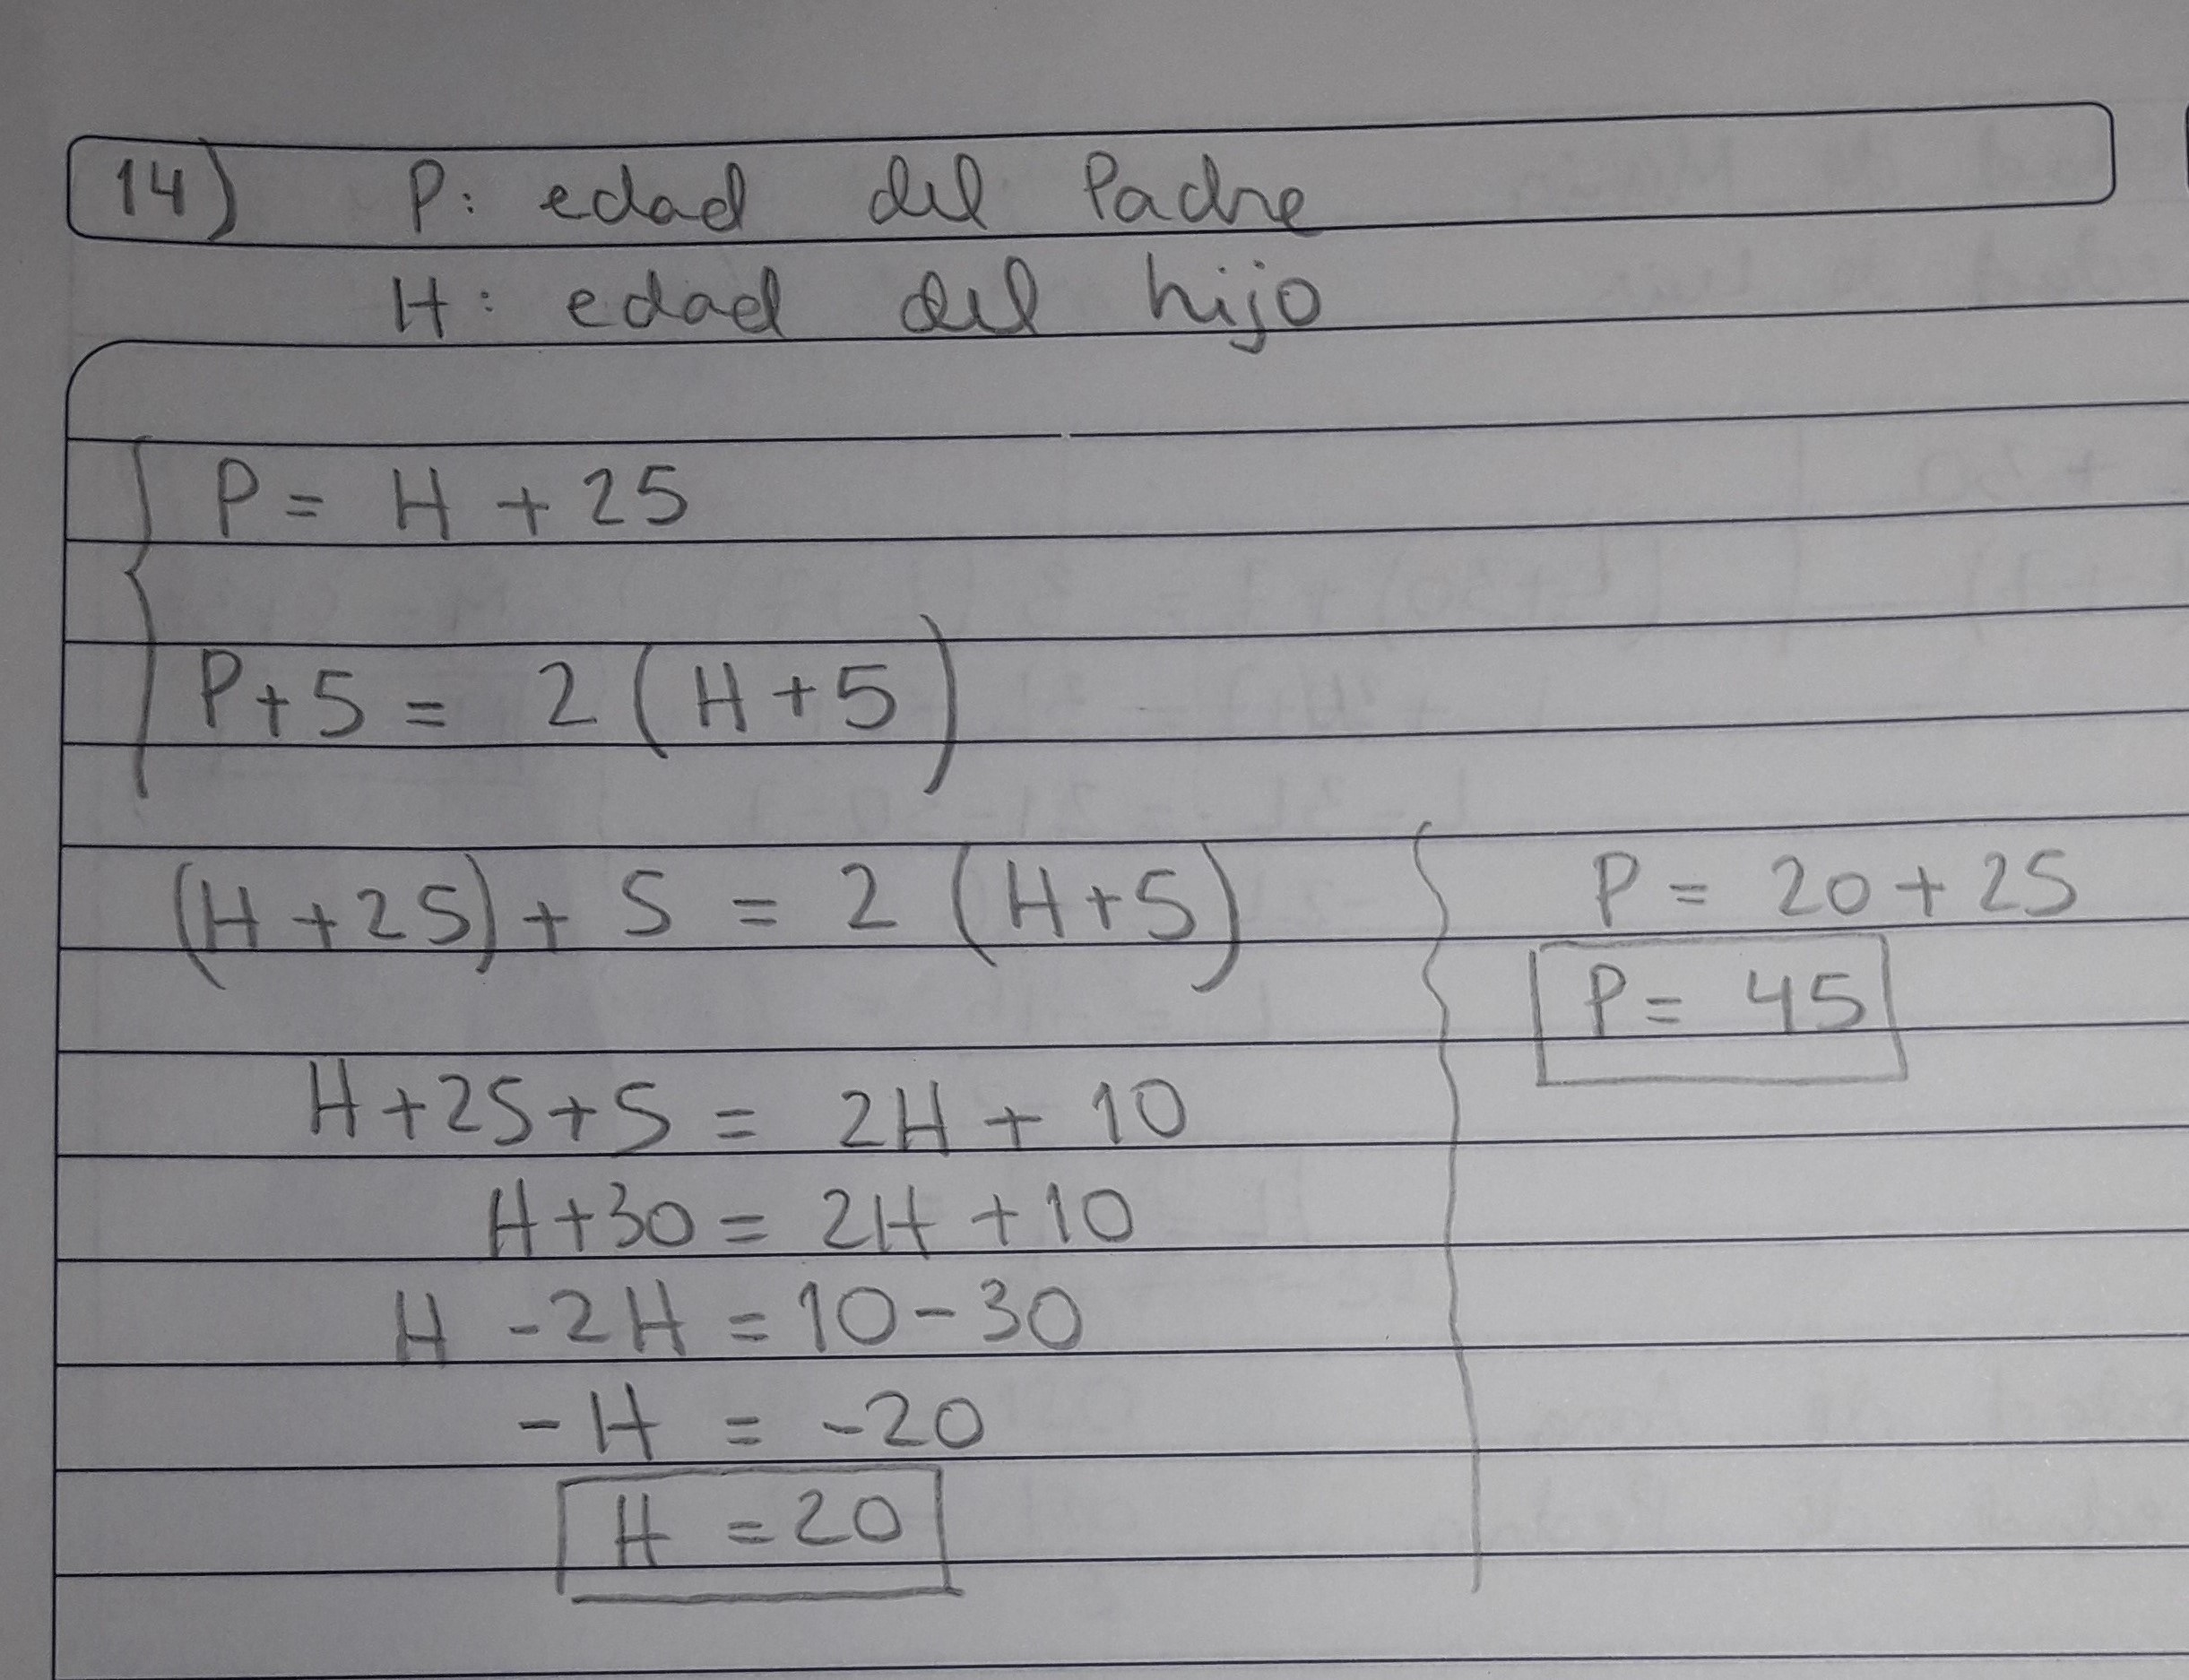 14) P: edad del Padre
H: edad del hijo
P = H + 25
P+5 = 2 (H+5)
(H+25) + 5 = 2 (H+5)
H+25+5 = 2H + 10
H+30 = 2H +10
H -2H = 10-30
-H = -20
H =20
P = 20+25
P= 45